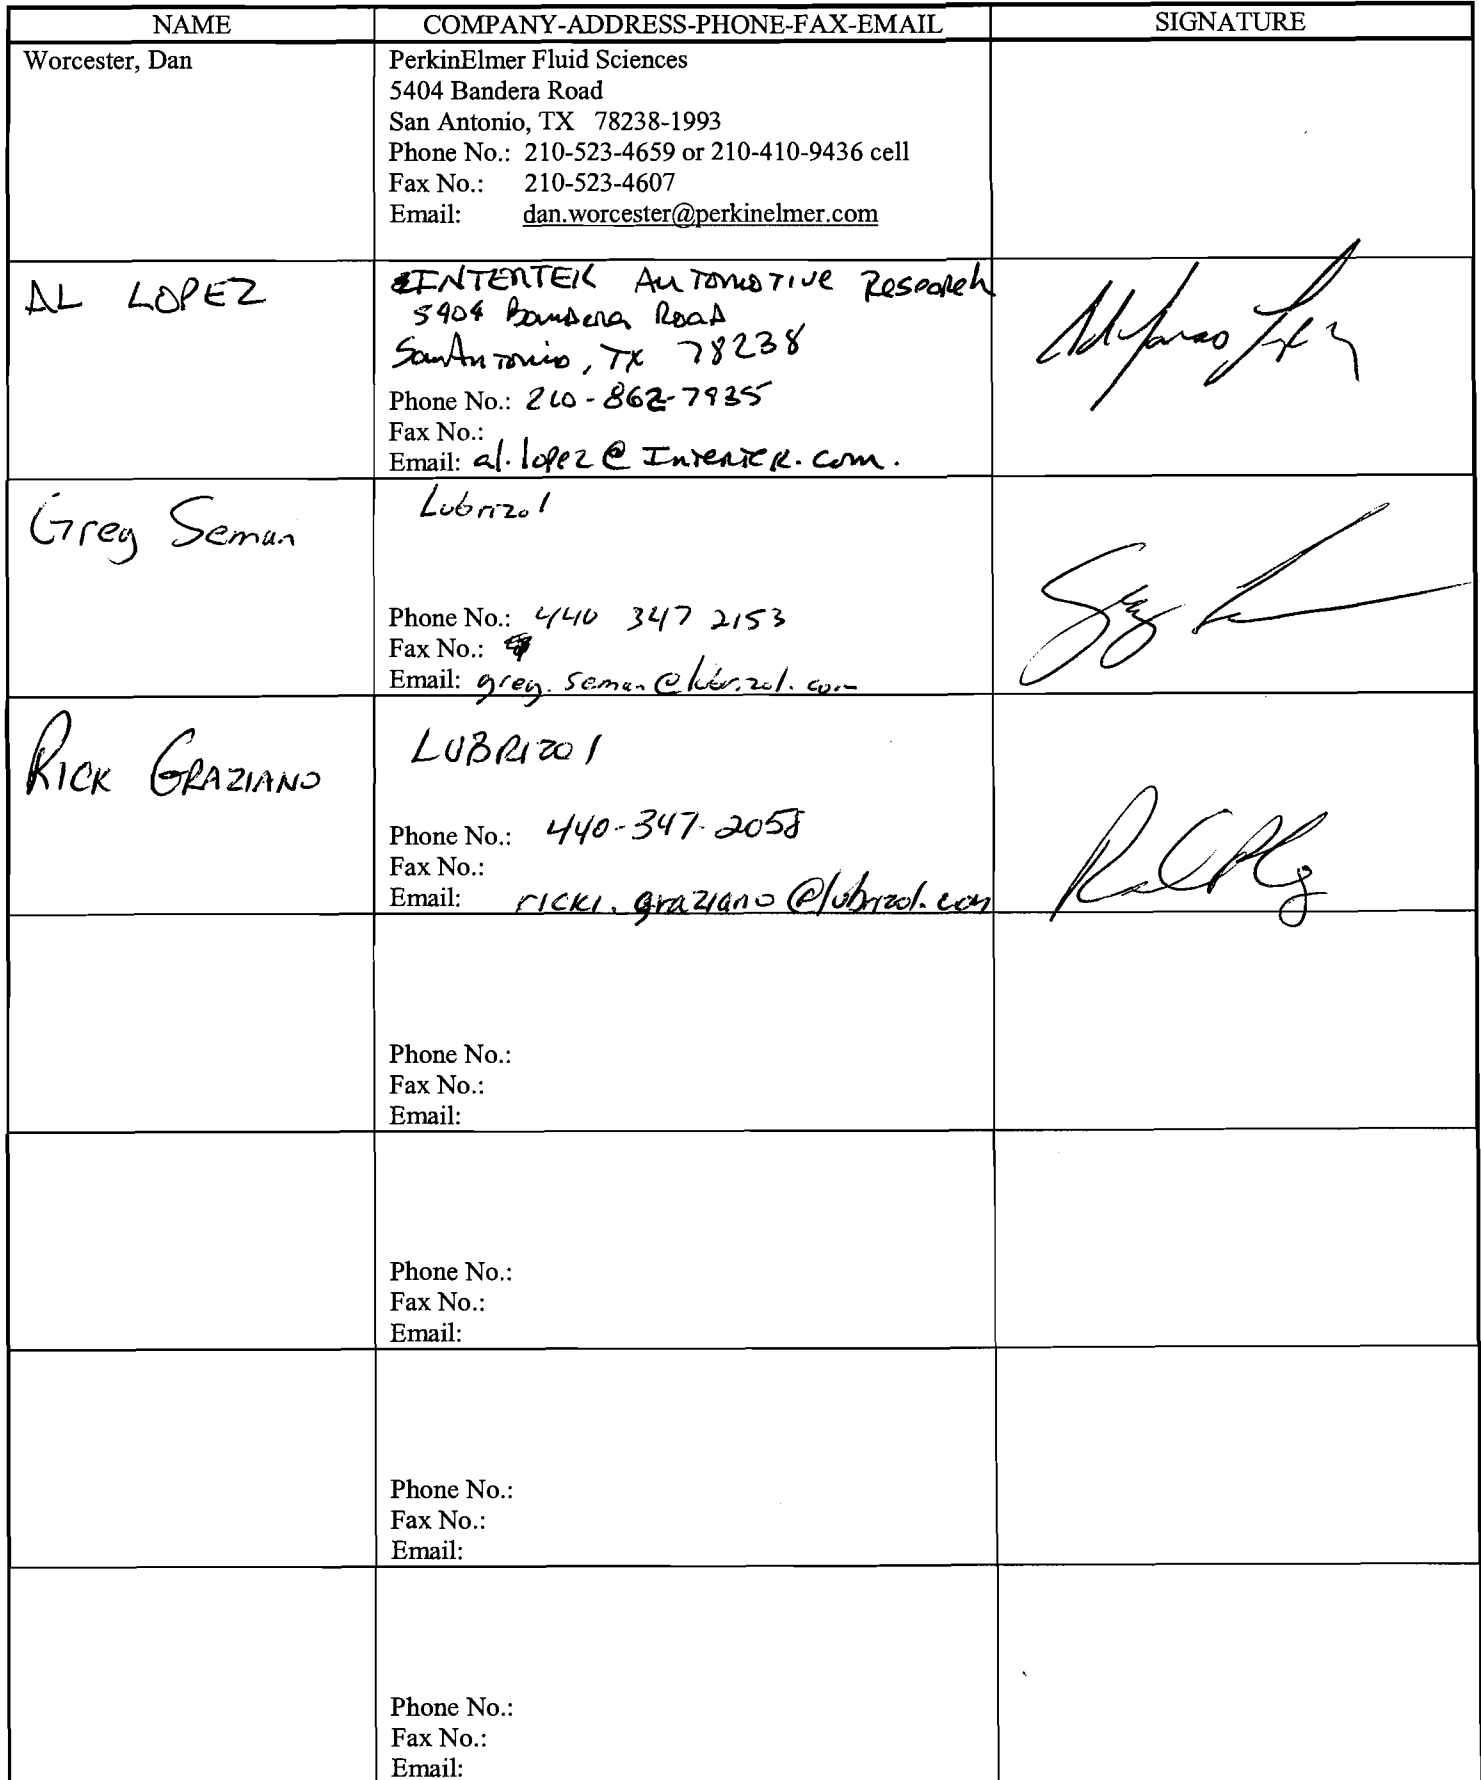 NAME COMPANY-ADDRESS-PHONE-FAX-EMAIL SIGNATURE
Worcester, Dan
PerkinElmer Fluid Sciences
5404 Bandera Road
San Antonio, TX 78238-1993
Phone No.: 210-523-4659 or 210-410-9436 cell
Fax No.: 210-523-4607
Email: dan.worcester@perkinelmer.com
AL LOPEZ
INTERTEK AUTOMOTIVE Research
5404 Bandera Road
San Antonio, TX 78238
Phone No.: 210-862-7935
Fax No.:
Email: al.lopez@Intertek.com.
Greg Seman
Lubrizol
Phone No.: 440 347 2153
Fax No.:
Email: greg.seman@lubrizol.com
RICK GRAZIANO
LUBRIZOl
Phone No.: 440-347-2058
Fax No.:
Email: ricki.graziano@lubrizol.com
Phone No.:
Fax No.:
Email:
Phone No.:
Fax No.:
Email:
Phone No.:
Fax No.:
Email:
Phone No.:
Fax No.:
Email: